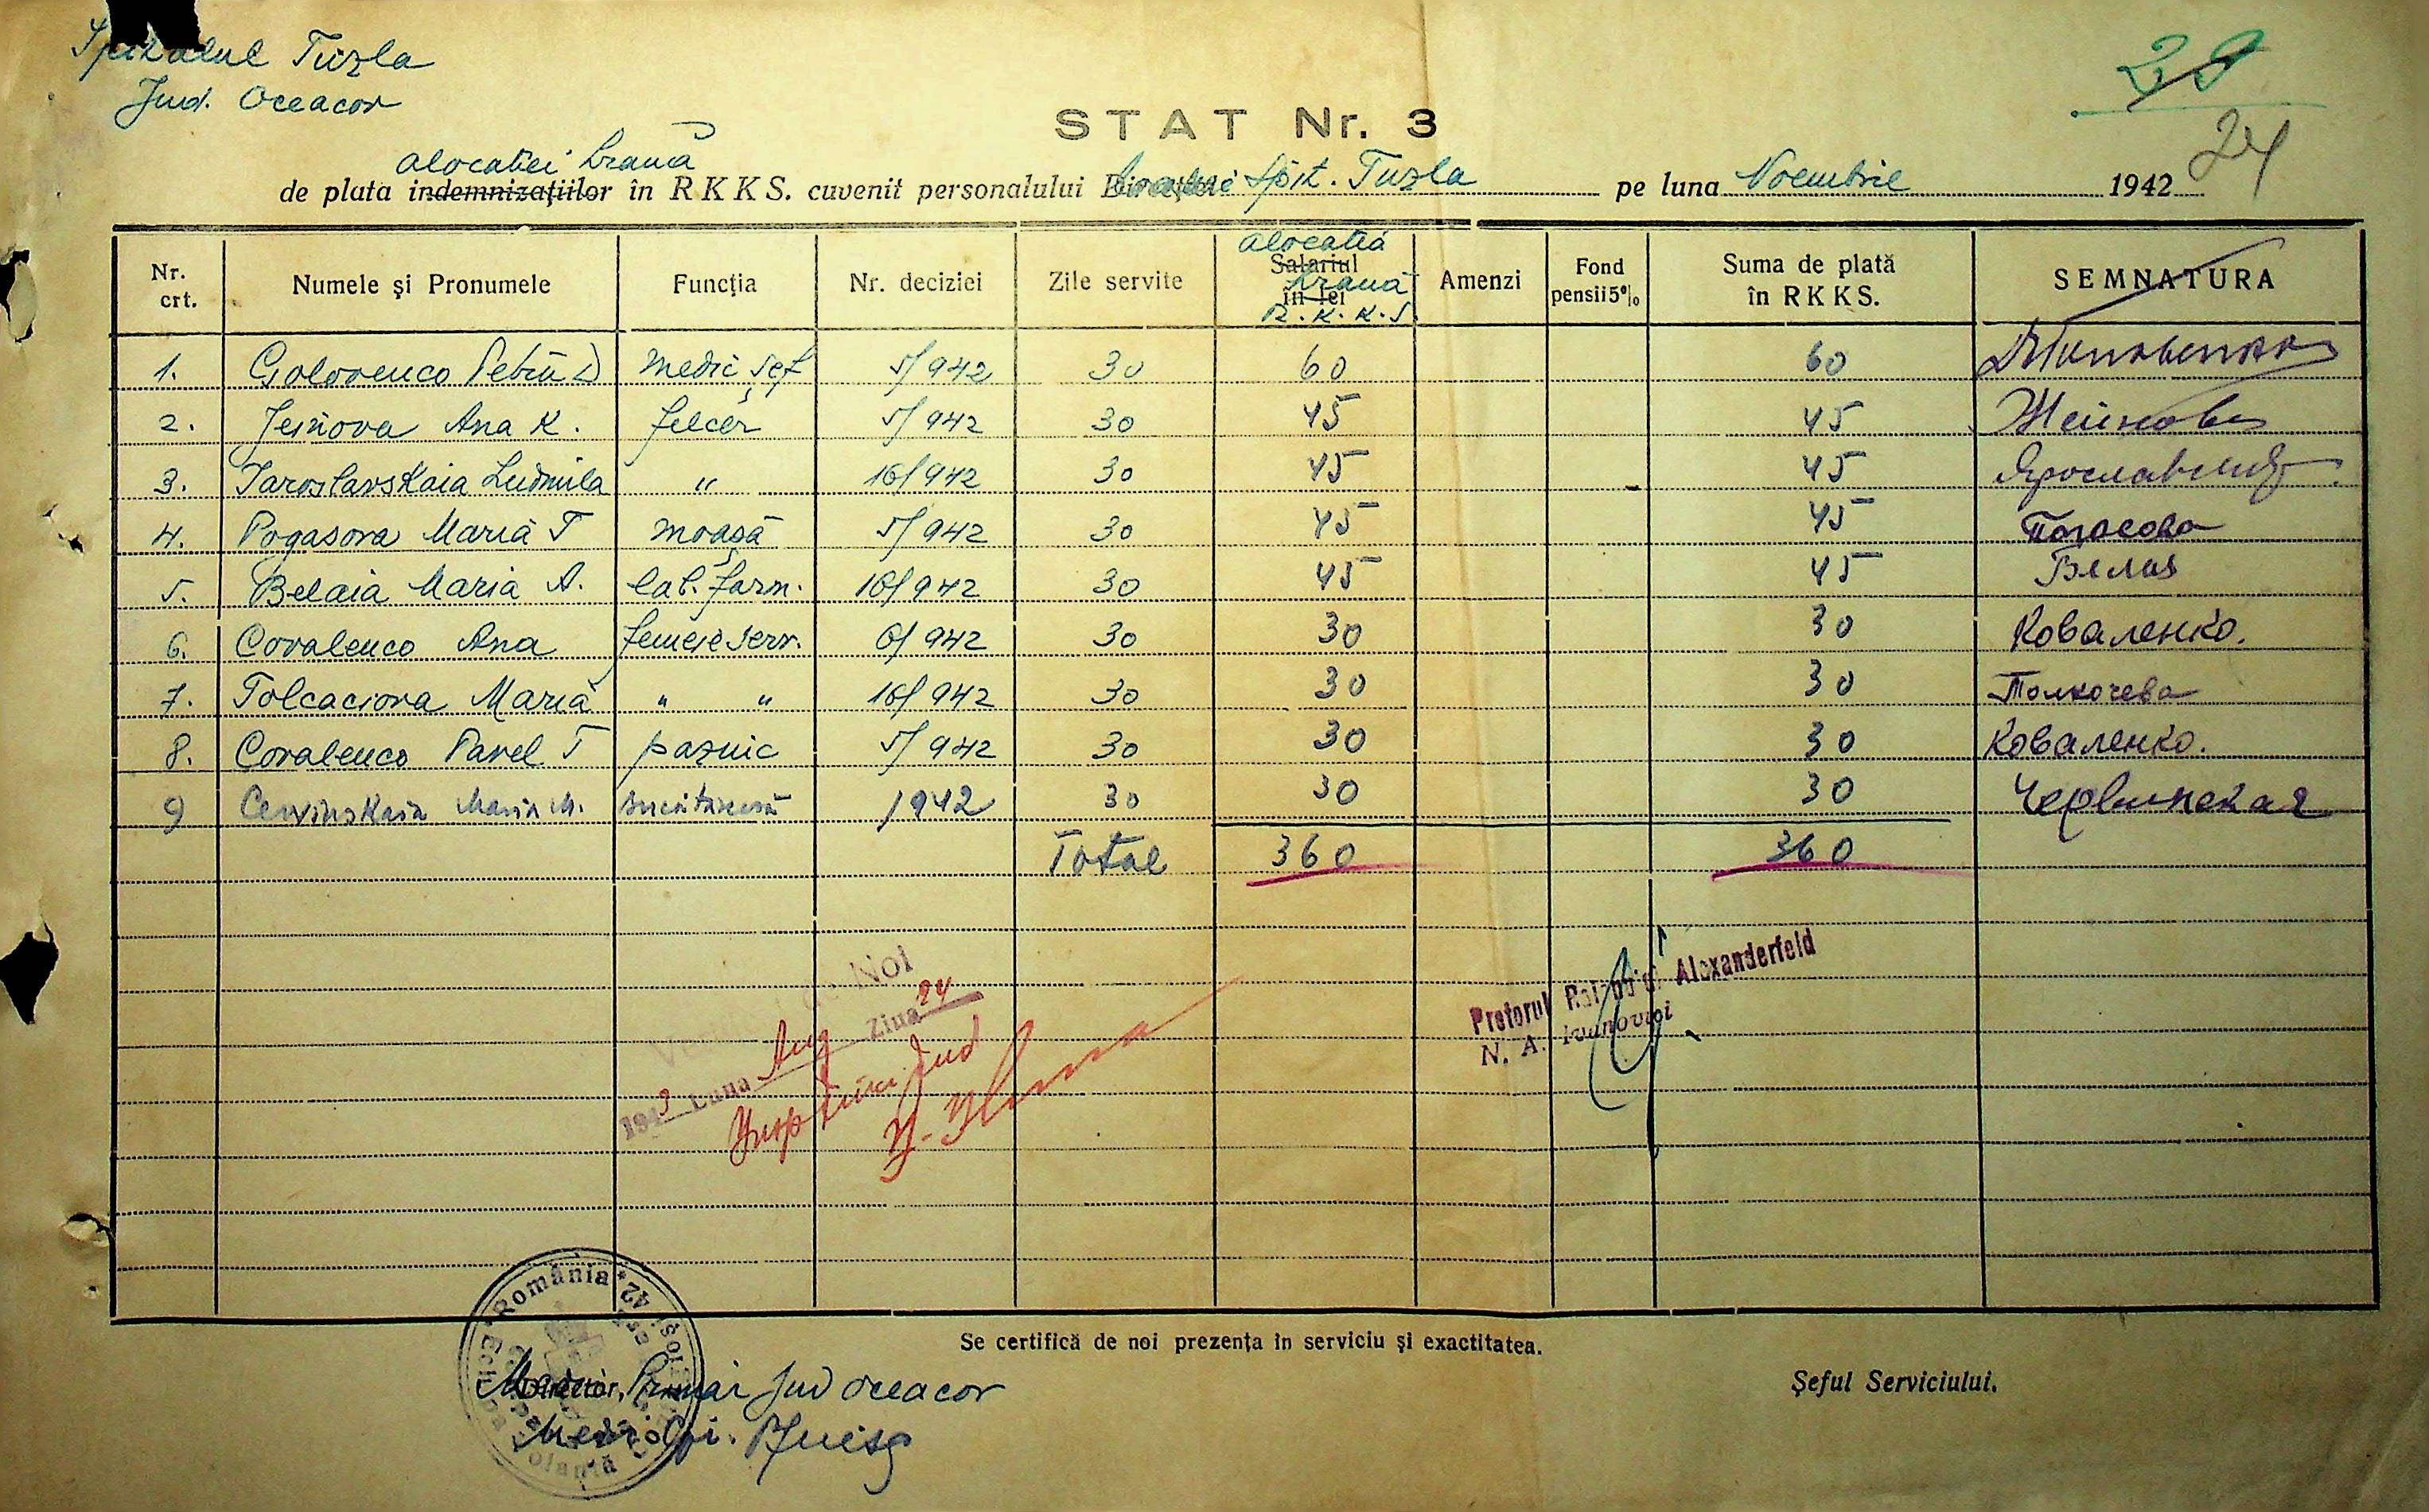 Spitalul Tuzla
Jud. Oceacov
29
24
STAT Nr. 3
alocatiei hrană
de plata indemnizaţiilor în R K K S. cuvenit personalului Spit. Tuzla pe luna Noembrie 1942
Nr. crt. Numele şi Pronumele Funcţia Nr. deciziei Zile servite alocatia Salariul hrană în lei R.K.K.S. Amenzi Fond pensii 5% Suma de plată în R K K S. SEMNATURA
1. Golovenco Petru D medic şef 5/942 30 60 60
2. Jeinova Ana K. felcer 5/942 30 45 45 Жейнова
3. Iaroslavskaia Ludmila " 16/942 30 45 45 Ярославская
4. Pogasova Maria T moaşă 5/942 30 45 45 Погасова
5. Belaia Maria A. lab. farm. 16/942 30 45 45 Белая
6. Covalenco Ana femeie serv. 6/942 30 30 30 Коваленко.
7. Tolcaciova Maria " " 16/942 30 30 30 Толкачева
8. Covalenco Pavel T paznic 5/942 30 30 30 Коваленко.
9 Cervinskaia Maria M. bucătăreasă /942 30 30 30 Червинская
Total 360 360
Noi
1943 Luna Aug Ziua 24
Jud
Pretorul Raionului Alexanderfeld
N. A. Ivanovici
Se certifică de noi prezenţa în serviciu şi exactitatea.
România
Director, Medic Primar Jud Oceacov
Şeful Serviciului.
Medic